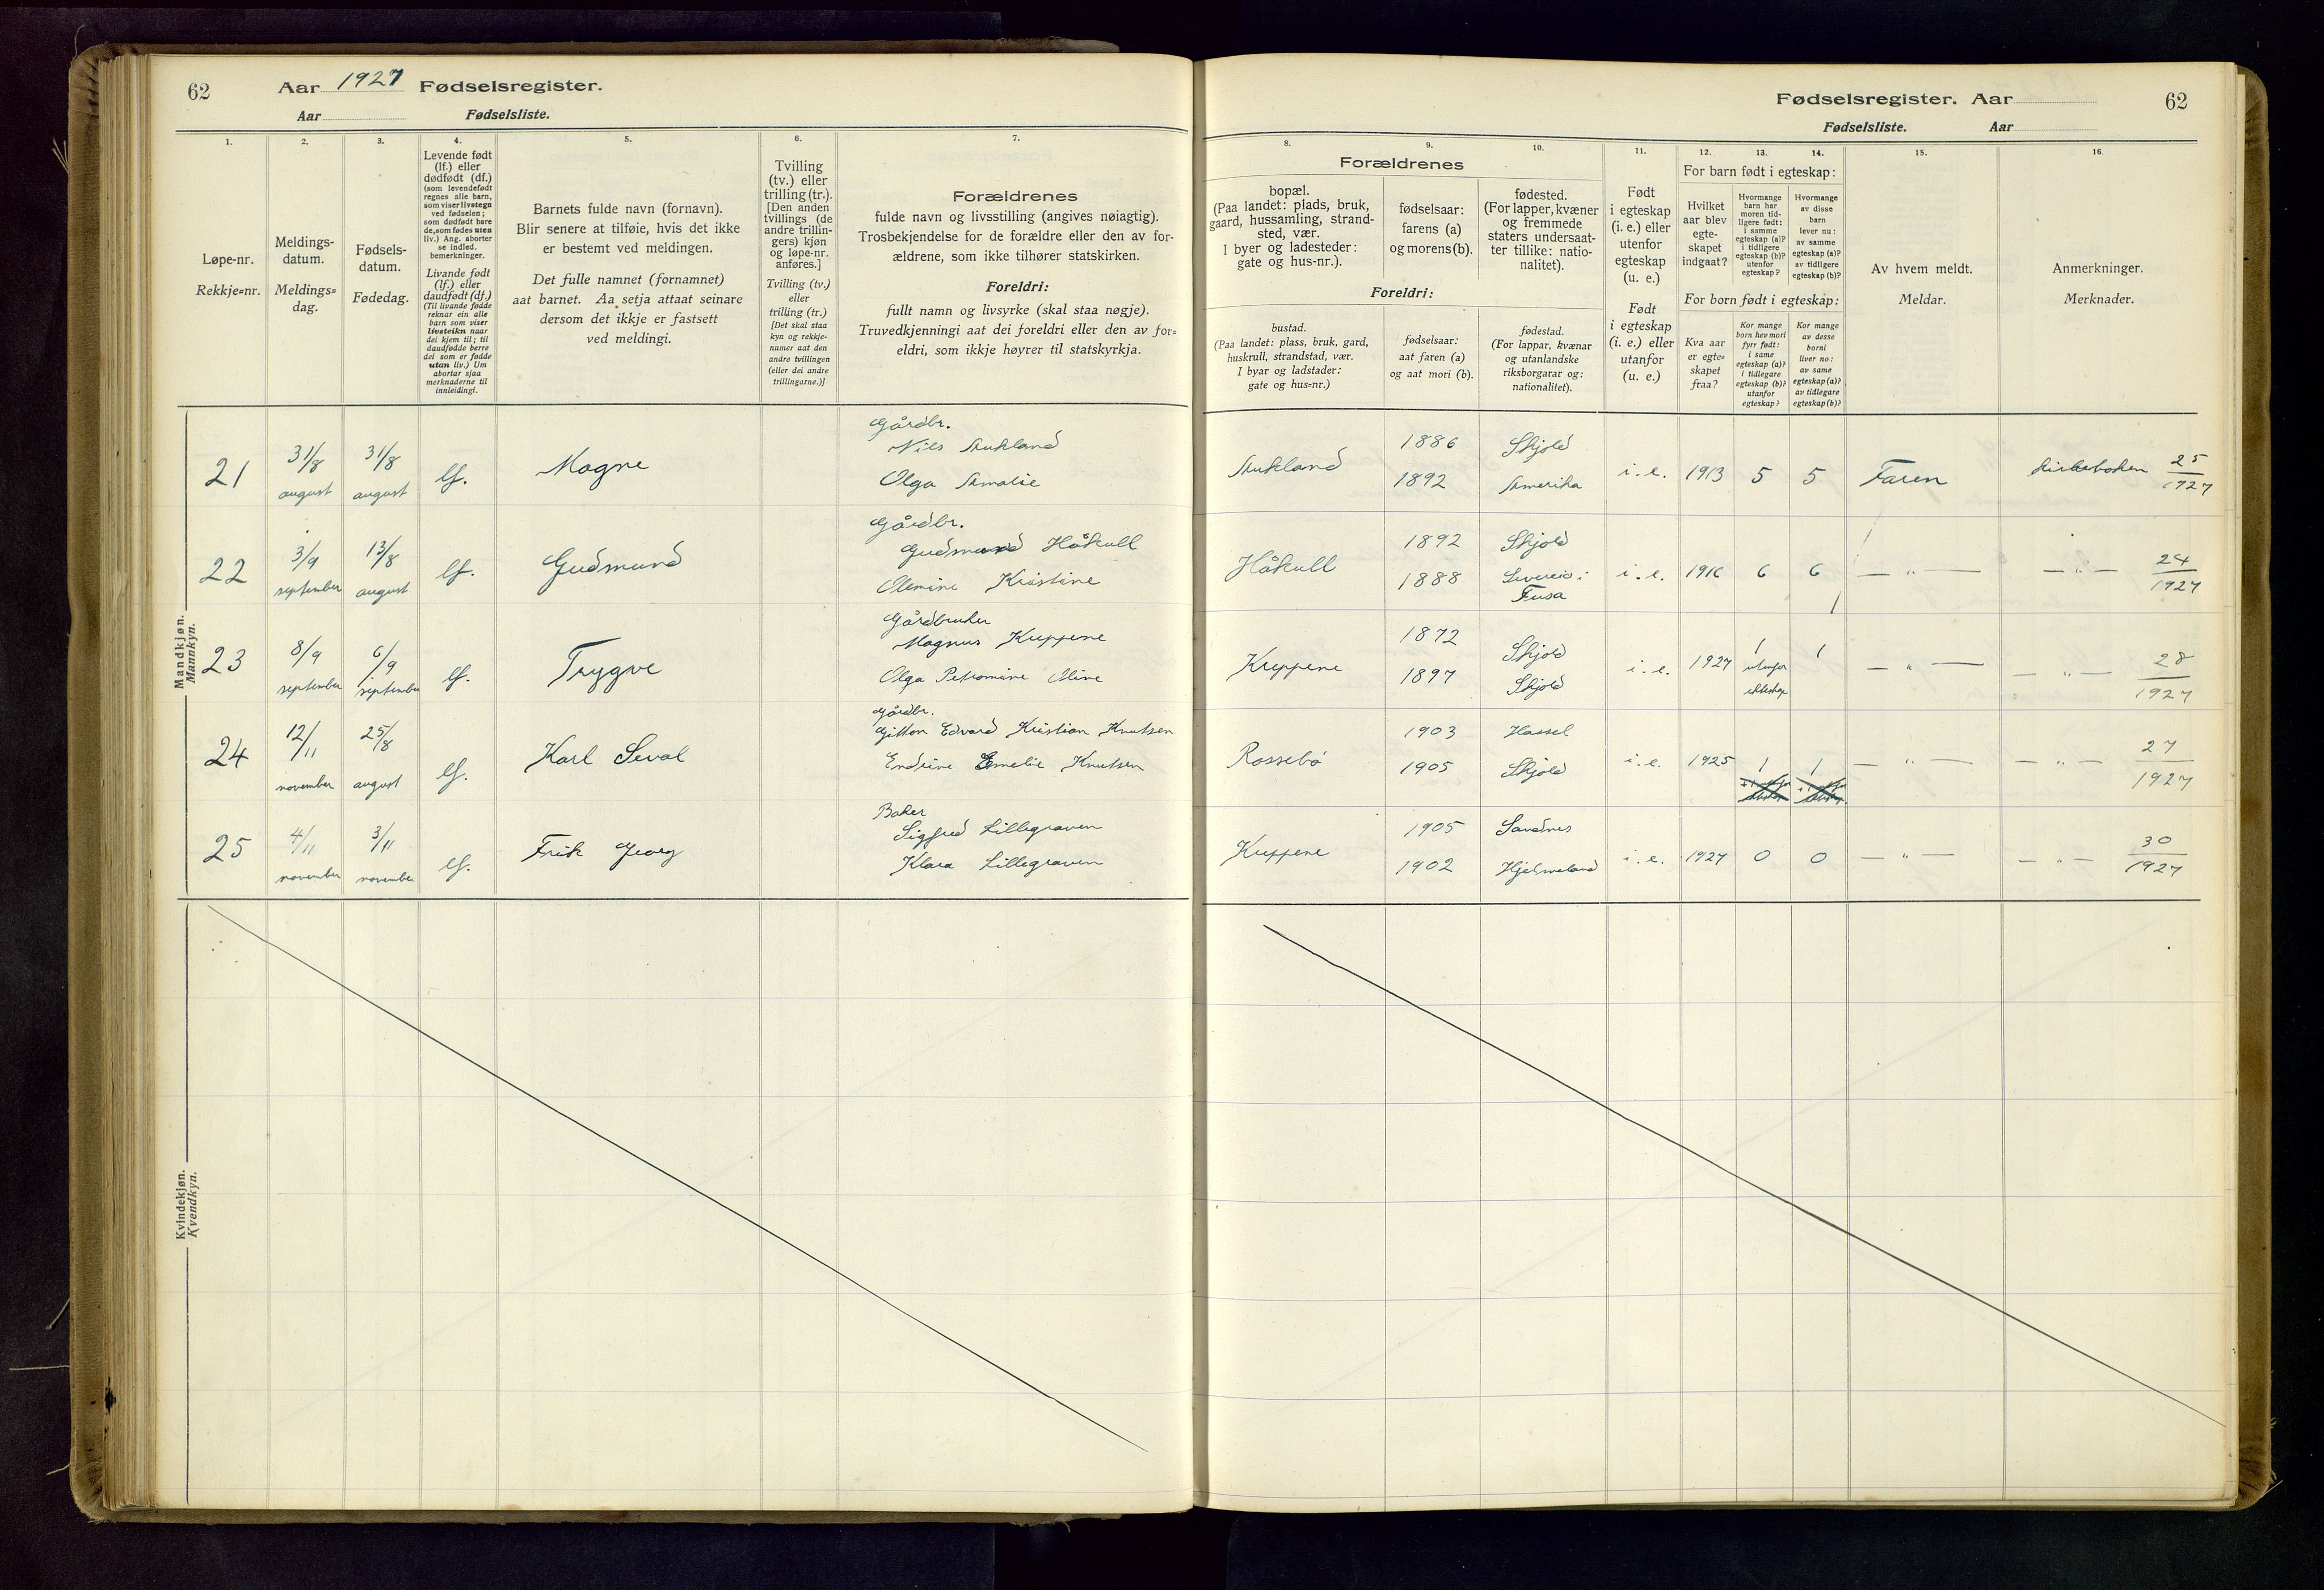 62
Aar 1927 Fødselsregister.
Aar Fødselsliste.
1.
Løpe-nr.
Rekkje=nr.
2.
Meldings-
datum.
Meldings=
dag.
3.
Fødsels-
datum.
Fødedag.
4.
Levende født
(lf.) eller
dødfødt (df.)
(som levendefødt
regnes alle barn,
som viser livstegn
ved fødselen;
som dødfødt bare
de, som fødes uten
liv.) Ang. aborter
se indled.
bemerkninger.
Livande født
(lf.) eller
daudfødt (df.)
(Til livande fødde
reknar ein alle
barn som viser
livsteikn naar
dei kjem til; til
daudfødde berre
dei som er fødde
utan liv.) Um
abortar sjaa
merknaderne til
innleidingi.
5.
Barnets fulde navn (fornavn).
Blir senere at tilføie, hvis det ikke
er bestemt ved meldingen.
Det fulle namnet (fornamnet)
aat barnet. Aa setja attaat seinare
dersom det ikkje er fastsett
ved meldingi.
6.
Tvilling
(tv.) eller
trilling (tr.).
[Den anden
tvillings (de
andre trillin-
gers) kjøn
og løpe-nr.
anføres.]
Tvilling (tv.)
eller
trilling (tr.)
[Det skal staa
kyn og rekkje-
numer aat den
andre tvillingen
(eller dei andre
trillingarne.)]
7.
Forældrenes
fulde navn og livsstilling (angives nøiagtig).
Trosbekjendelse for de forældre eller den av for-
ældrene, som ikke tilhører statskirken.
Foreldri:
fullt namn og livsyrke (skal staa nøgje).
Truvedkjenningi aat dei foreldri eller den av for=
eldri, som ikkje høyrer til statskyrkja.
Mandkjøn.
Mannkyn.
21 31/8 august 31/8 august lf. Magne
Gårdbr.
Nils
Olga Amalie
22 3/9 september 13/8 august lf. Gudmund
Gårdbr.
Gudmund Håkull
Olemine Kristine
23 8/9 september 6/9 september lf. Trygve
Gårdbruker
Magnus Kreppene
Olga Petromine Oline
24 12/11 november 25/8 august lf. Karl Seval
Gårdbr.
Gitton Edvard Kristian Knutsen
Endrine Emelie Knutsen
25 4/11 november 3/11 november lf. Frik Georg
Baker
Sigfred Lillegraven
Klara Lillegraven
Kvindekjøn.
Kvendkyn.
Fødselsregister. Aar 62
Fødselsliste. Aar
8.
Forældrenes
bopæl.
(Paa landet: plads, bruk,
gaard, hussamling, strand-
sted, vær.
I byer og ladesteder:
gate og hus-nr.).
9.
fødselsaar:
farens (a)
og morens (b).
10.
fødested.
(For lapper, kvæner
og fremmede
staters undersaat-
ter tillike: natio-
nalitet).
Foreldri:
bustad.
(Paa landet: plass, bruk, gard,
huskrull, strandstad, vær.
I byar og ladstader:
gate og hus=nr.)
fødselsaar:
aat faren (a)
og aat mori (b).
fødestad.
(For lappar, kvænar
og utanlandske
riksborgarar og:
nationalitet).
11.
Født
i egteskap
(i. e.) eller
utenfor
egteskap
(u. e.)
Født
i egteskap
(i. e.) eller
utanfor
(u. e.)
12. 13. 14.
For barn født i egteskap:
Hvilket
aar blev
egte-
skapet
indgaat?
Hvormange
barn har
moren tid-
ligere født:
i samme
egteskap (a)?
i tidligere
egteskap (b)?
utenfor
egteskap?
Hvormange
av disse
barn
lever nu:
av samme
egteskap (a)?
av tidligere
egteskap (b)?
For born født i egteskap:
Kva aar
er egte=
skapet
fraa?
Kor mange
born hev mori
fyrr født:
i same
egteskap (a)?
i tidlegare
egteskap (b)?
utanfor
egteskap?
Kor mange
av desse
borni
liver no:
av same
egteskap (a)?
av tidlegare
egteskap (b)?
15.
Av hvem meldt.
Meldar.
16.
Anmerkninger.
Merknader.
1886 Skjold
1892 Amerika
i. e. 1913 5 5 Faren kirkeboken 25/1927
Håkull
1892 Skjold
1888 Fusa
i. e. 1916 6 6 — " — — " — 24/1927
Kreppene
1872 Skjold
1897 Skjold
i. e. 1927 1 utenfor 1 — " — — " — 28/1927
Rossebø
1903 Hassel
1905 Skjold
i. e. 1925 1 1 — " — — " — 27/1927
Kreppene
1905 Sandnes
1902 Hjelmeland
i. e. 1927 0 0 — " — — " — 30/1927